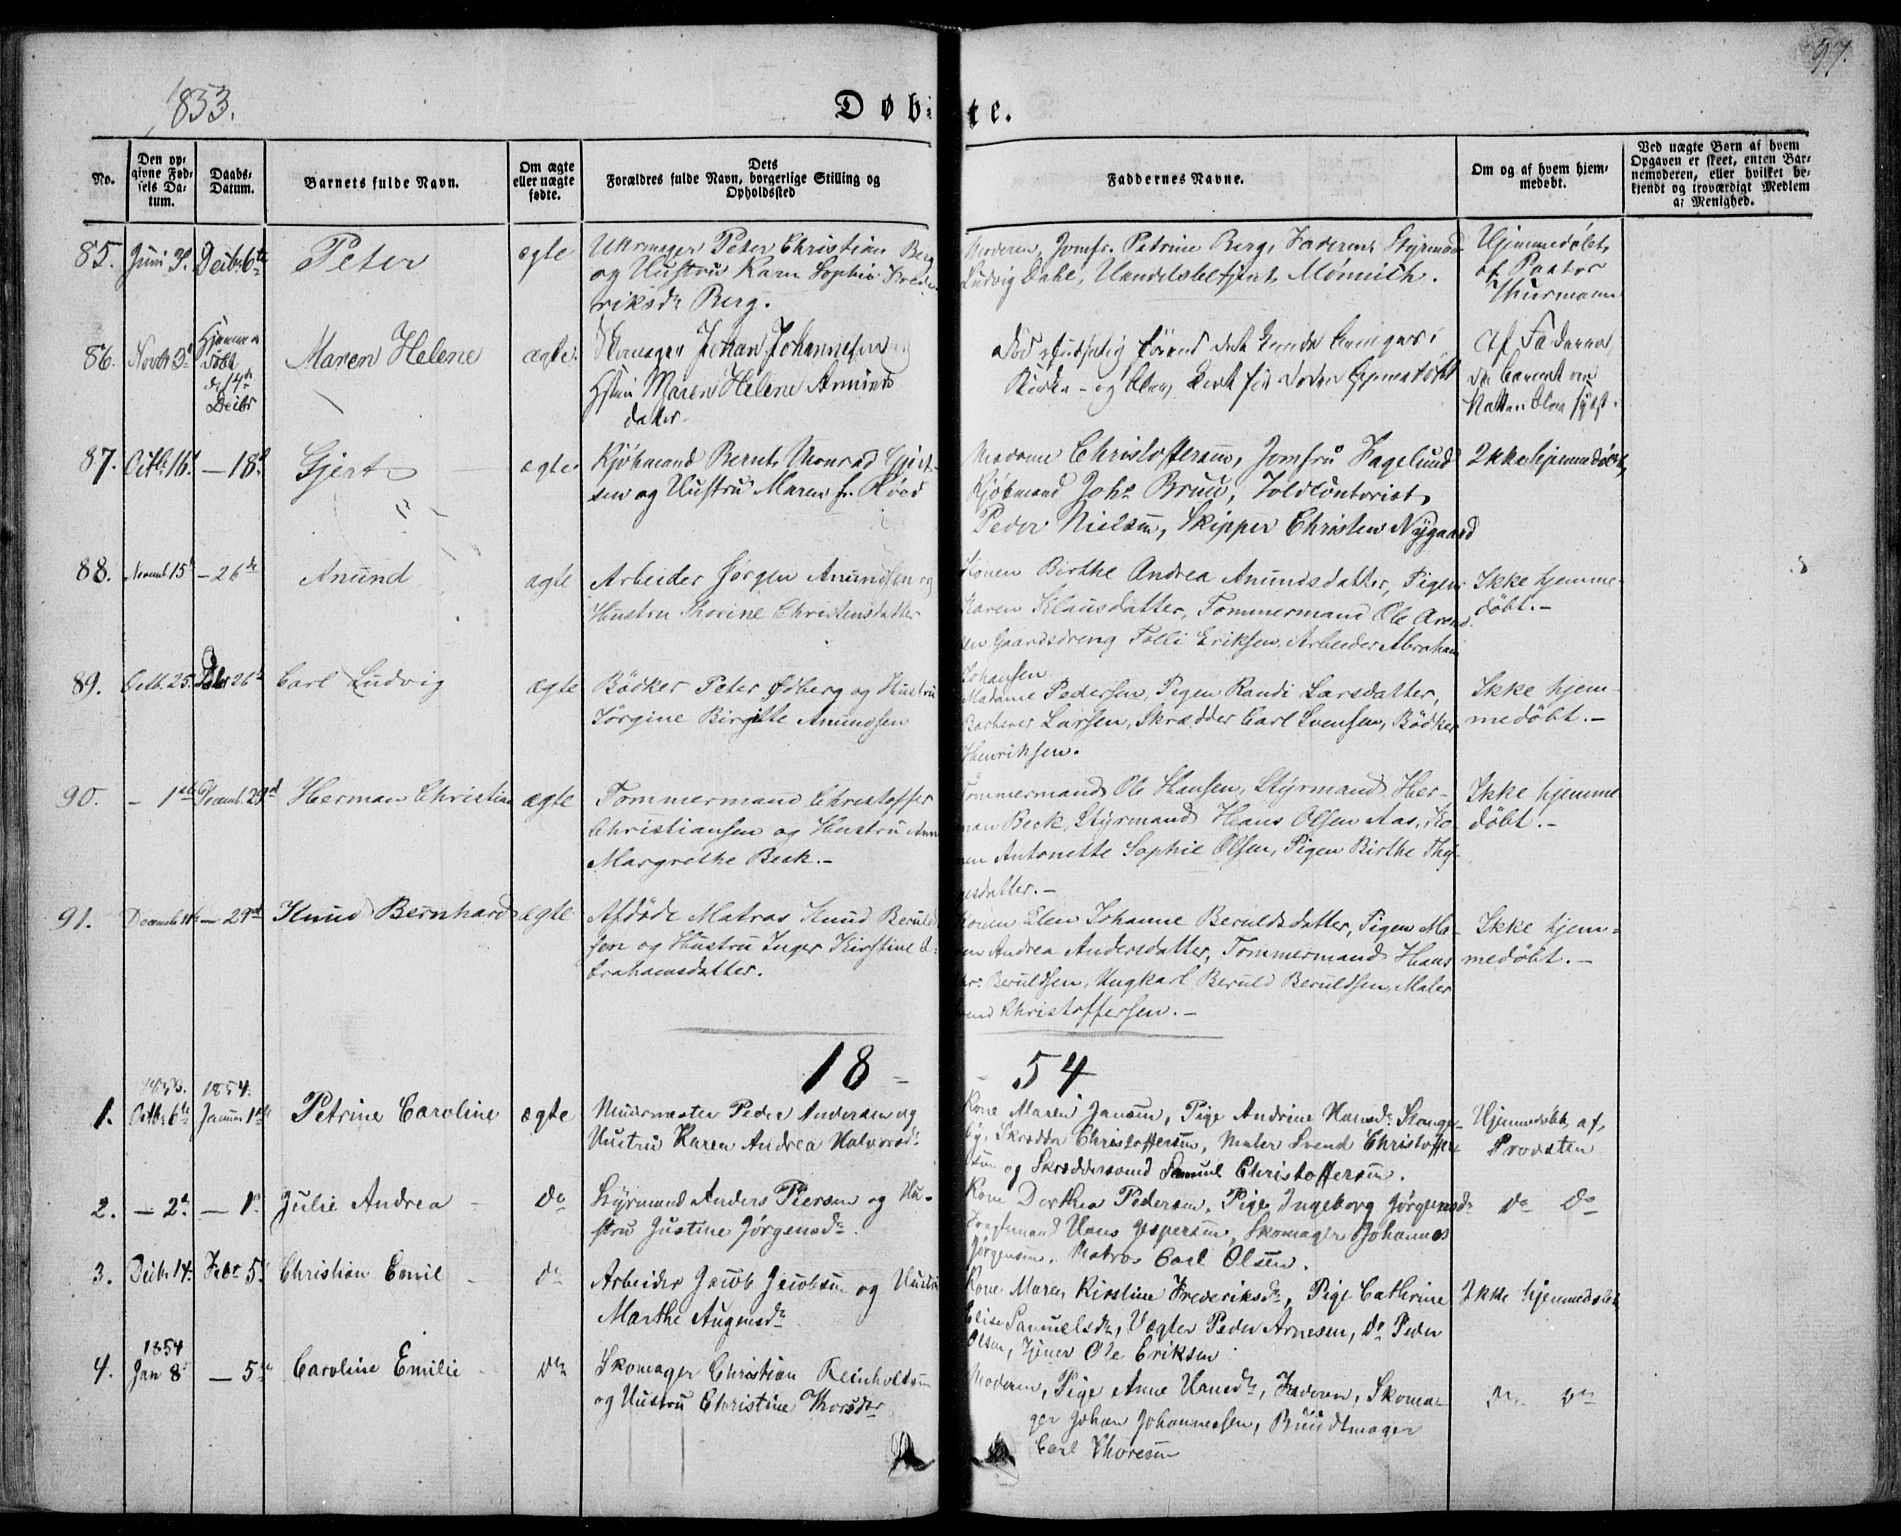 1853.
97.
Døbte.
No.
Den opgivne Fødsels Datum.
Daabs-Datum.
Barnets fulde Navn.
Om ægte eller uægte fødte.
Dets Forældres fulde Navn, borgerlige Stilling og Opholdssted
Faddernes Navne.
Om og af hvem hjemmedøbt.
Ved uægte Børn af hvem Opgaven er skeet, enten Barnemoderen, eller hvilket bekjendt og troværdigt Medlem af Menighed.
85. Juni 3. Decbr 6te Peter ægte
Uhrmager Peter Christian Berg
og Hustru Karn Sophie Frede
riksdr Berg.
Moderen, Jomfr. Petrine Berg, Faderen, Styrmand
Ludvig Dahl, Handelsbetjent Mønnich.
Hjemmedøbt,
af Pastor
Thurmann
86. Novbr 3 Hjemme
døbt
d 14de
Decbr
Maren Helene ægte.
Skomager Johan Johannesen og
Hstru Maren Helene Amunds
datter
Kirke- og
Af Faderen
87. Octbr 16 — 18 Gjert ægte
Kjøbmand Bernt Monrad Gjert-
sen og Hustru Maren f. Röed
Madame Christoffersen, Jomfru Fagelund
Kjøbmand Johs Bruu, Toldcontorist
Peder Nielsen, Skipper Christen Nygaard
Ikke hjemmedøbt,
88. Novemb 15 — 26de Anund ægte
Arbeider Jørgen Anundsen og
Hustru Thorine Christensdatter
Konen Birthe Andrea Anundsdatter, Pigen
Karen Klausdatter, Tømmermand Ole Arend
sen Gaardsdreng Tolli Eriksen, Arbeider Abraham
Johansen
Ikke hjemme-
døbt.-
89. Octb. 25. Debr 26de Carl Ludvig ægte
Bödker Peter Ødberg og Hustru
Jörgine Birgitte Anundsen
Madame Pedersen, Pigen Randi Larsdatter,
Barberer Larsen, Skrædder Carl Svensen, Bödker
Henriksen.
Ikke hjem-
medøbt.-
90. - 1ste Decemb. 29d Herman Christian ægte
Tømmermand Christoffer
Christiansen og Hustru Ann
Margrethe Beck.-
Tømmermand Ole Hansen, Styrmand Her-
man Beck, Styrmand Hans Olsen Aas, Ko-
nen Antonette Sophie Olsen, Pigen Birthe
datter.-
Ikke hjemme
døbt.-
91. Decemb — 29d Knud Bernhard ægte
Afdöde Matros Knud Beruld
sen og Hustru Inger Kirstine A-
brahamsdatter.
Konen Elen Johanne Beruldsdatter, Pigen Ma-
ren Andrea Andersdatter, Tømmermand Hans
Beruldsen, Ungkarl Beruld Beruldsen, Maler
Svend Christoffersen.-
Ikke hjem-
medøbt.-
18 - 54
1. 1853. Octbr 6te 1854. Januar 1ste Petrine Caroline ægte
Muurmester Peder Andersen og
Hustru Karen Andrea Halvorsdr
Kone Maren Jansen, Pige Andrine Hansdr Stange-
by, Skrædder Christoffersen, Maler Svend Christoffer
sen og Skræddersvend Samuel Christoffersen.
Hjemmedøbt, af
Provsten
2. — 2d — 1 Julie Andrea do
Styrmand Anders Piersen og Hu-
stru Justine Jörgensdr
Kone Dorthea Pedersen, Pige Ingeborg Jørgensdr
Hans Jespersen, Skomager Johannes
Jörgensen, Matros Carl Olsen.
do do
3. Decbr 14. Febr 5 Christian Emil do
Arbeider Jacob Jacobsen og Hustru
Marthe Augensdr
Kone Maren Kirstine Frederiksdr, Pige Cathrine
Elise Samuelsdr, Vægter Peder Arnesen, do Peder
Olsen, Tjener Ole Eriksen
Ikke hjemmedøbt
4. 1854 Jan 8 — 5 Caroline Emilie do
Skomager Christian Reinholdsen
og Hustru Christine Thorsdr
Moderen, Pige Anne Hansdr, Faderen, Skoma
ger Johan Johannesen, Bundtmager
Carl Thoresen
do do